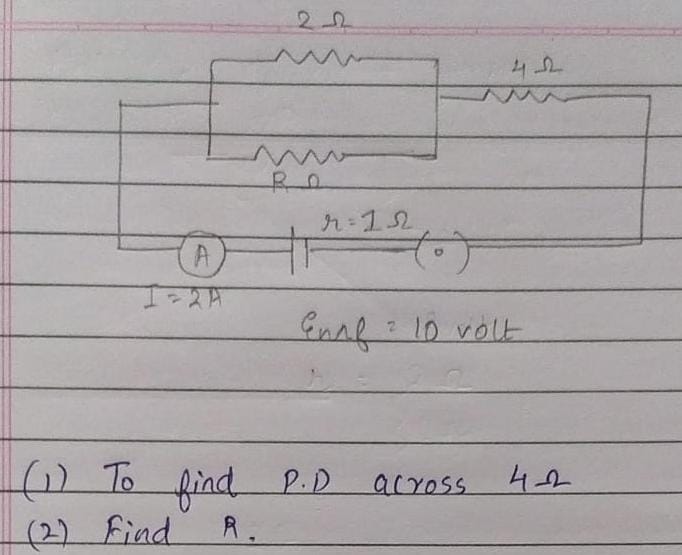 2 Ω
4 Ω
R Ω
r = 1 Ω
A
I = 2A
Emf = 10 volt
(1) To find P.D across 4Ω
(2) Find R.